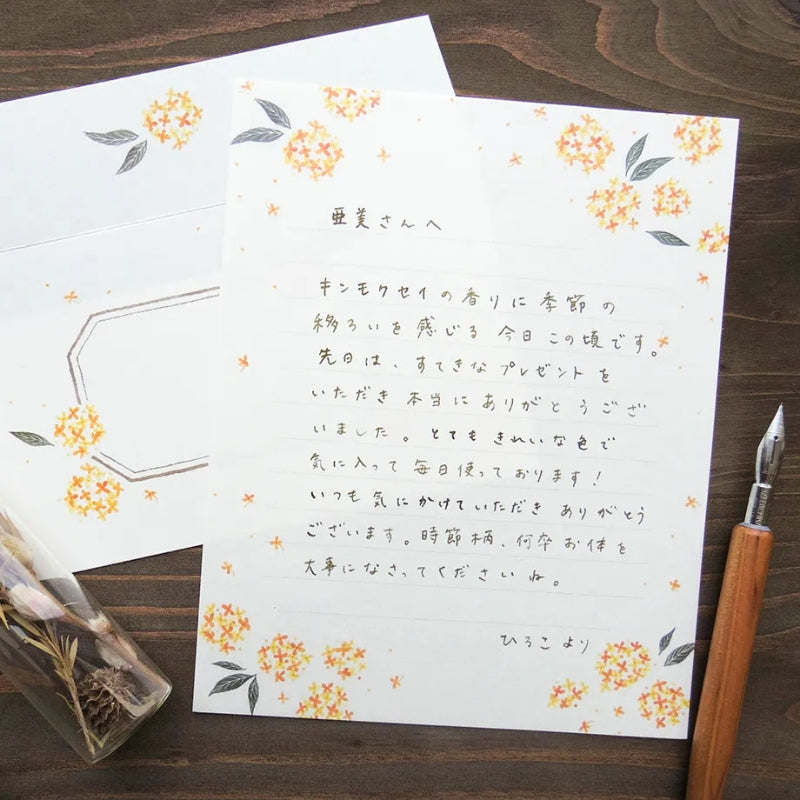 亜美さんへ
キンモクセイの香りに季節の
移ろいを感じる今日この頃です。
先日は、すてきなプレゼントを
いただき本当にありがとうござ
いました。とてもきれいな色で
気に入って毎日使っております！
いつも気にかけていただきありがとう
ございます。時節柄、何卒お体を
大事になさってくださいね。
ひろこより